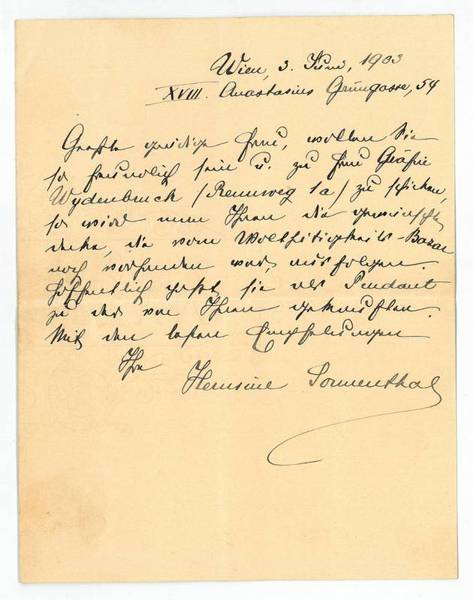 Wien, 3. Juni, 1903
XVIII. Anastasius Grüngasse, 54
Geehrte gnädige Frau, wollen Sie
so freundlich sein u. zu Frau Gräfin
Wydenbruck /Rennweg 1a/ zu schicken,
so wird man Ihnen die gewünschte
Decke, die vom Wolthätigkeits-Bazar
noch vorhanden war, ausfolgen.
Hoffentlich paßt sie als Pendant
zu der von Ihnen gekauften.
Mit den besten Empfehlungen
Ihre
Hermine Sonnenthal